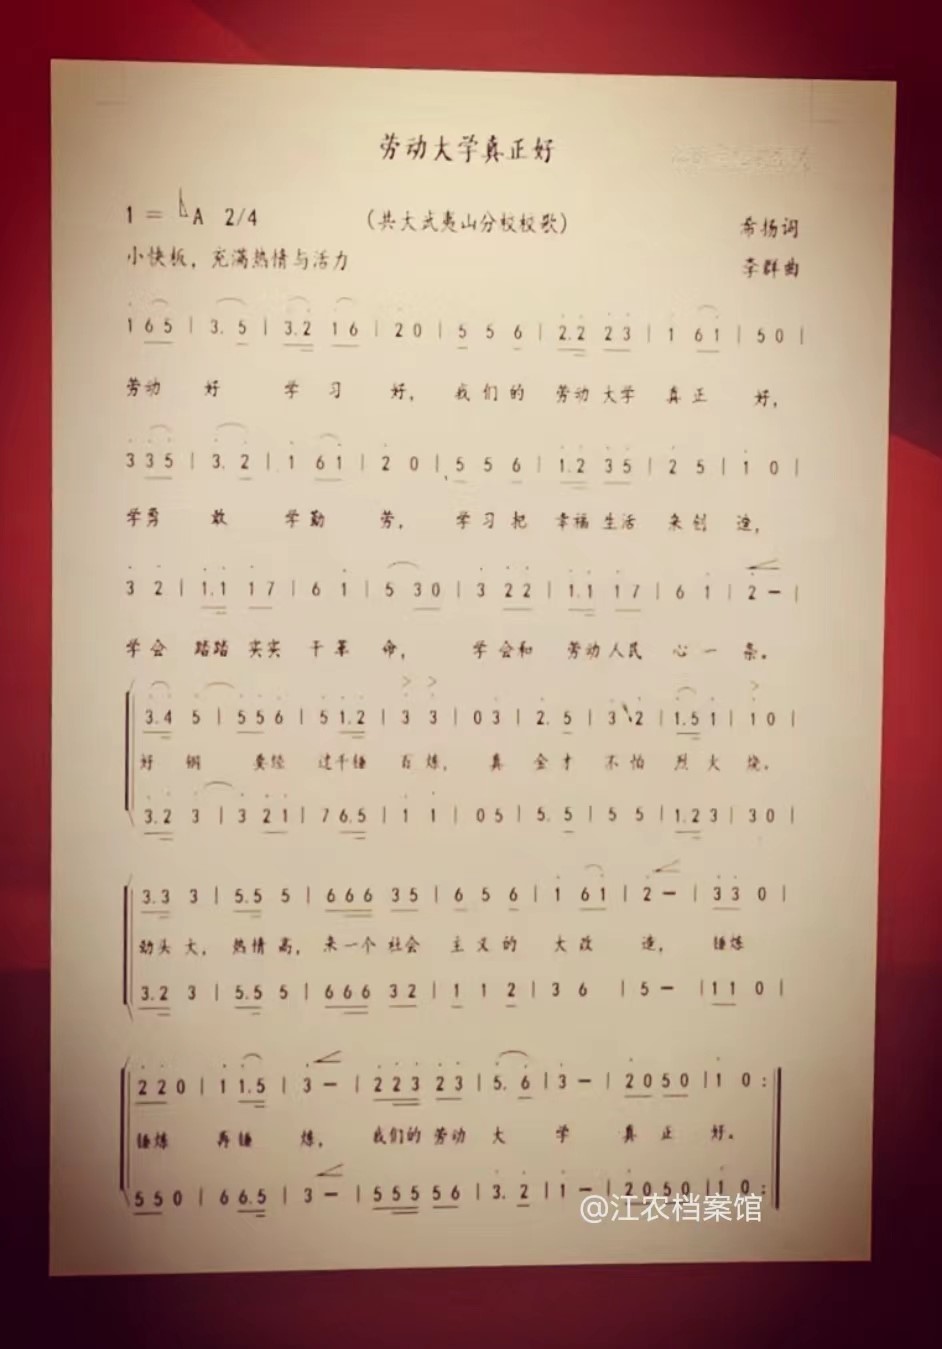 劳动大学真正好
1 = ♭A 2/4 （共大武夷山分校校歌） 希扬词
小快板，充满热情与活力 李群曲
1 6 5 | 3. 5 | 3. 2 1 6 | 2 0 | 5 5 6 | 2. 2 2 3 | 1 6 1 | 5 0 |
劳动 好 学 习 好， 我 们 的 劳动 大学 真 正 好，
3 3 5 | 3. 2 | 1 6 1 | 2 0 | 5 5 6 | 1. 2 3 5 | 2 5 | 1 0 |
学勇 敢 学 勤 劳， 学 习 把 幸福 生活 来 创 造，
3 2 | 1. 1 1 7 | 6 1 | 5 3 0 | 3 2 2 | 1. 1 1 7 | 6 1 | 2 － |
学 会 踏踏 实实 干 革 命， 学 会和 劳动 人民 心 一 条。
3. 4 5 | 5 5 6 | 5 1. 2 | 3 3 | 0 3 | 2. 5 | 3 2 | 1. 5 1 | 1 0 |
好 钢 要经 过千锤 百 炼， 真 金才 不 怕 烈 火 烧。
3. 2 3 | 3 2 1 | 7 6. 5 | 1 1 | 0 5 | 5. 5 | 5 5 | 1. 2 3 | 3 0 |
3. 3 3 | 5. 5 5 | 6 6 6 3 5 | 6 5 6 | 1 6 1 | 2 － | 3 3 0 |
劲头 大， 热情 高， 来一个 社会 主 义 的 大 改 造， 锤炼
3. 2 3 | 5. 5 5 | 6 6 6 3 2 | 1 1 2 | 3 6 | 5 － | 1 1 0 |
2 2 0 | 1 1. 5 | 3 － | 2 2 3 2 3 | 5. 6 | 3 － | 2 0 5 0 | 1 0 :
锤炼 再锤 炼， 我们的 劳动 大 学 真 正 好。
5 5 0 | 6 6. 5 | 3 － | 5 5 5 5 6 | 3. 2 | 1 － | 2 0 5 0 | 1 0 :
@江农档案馆